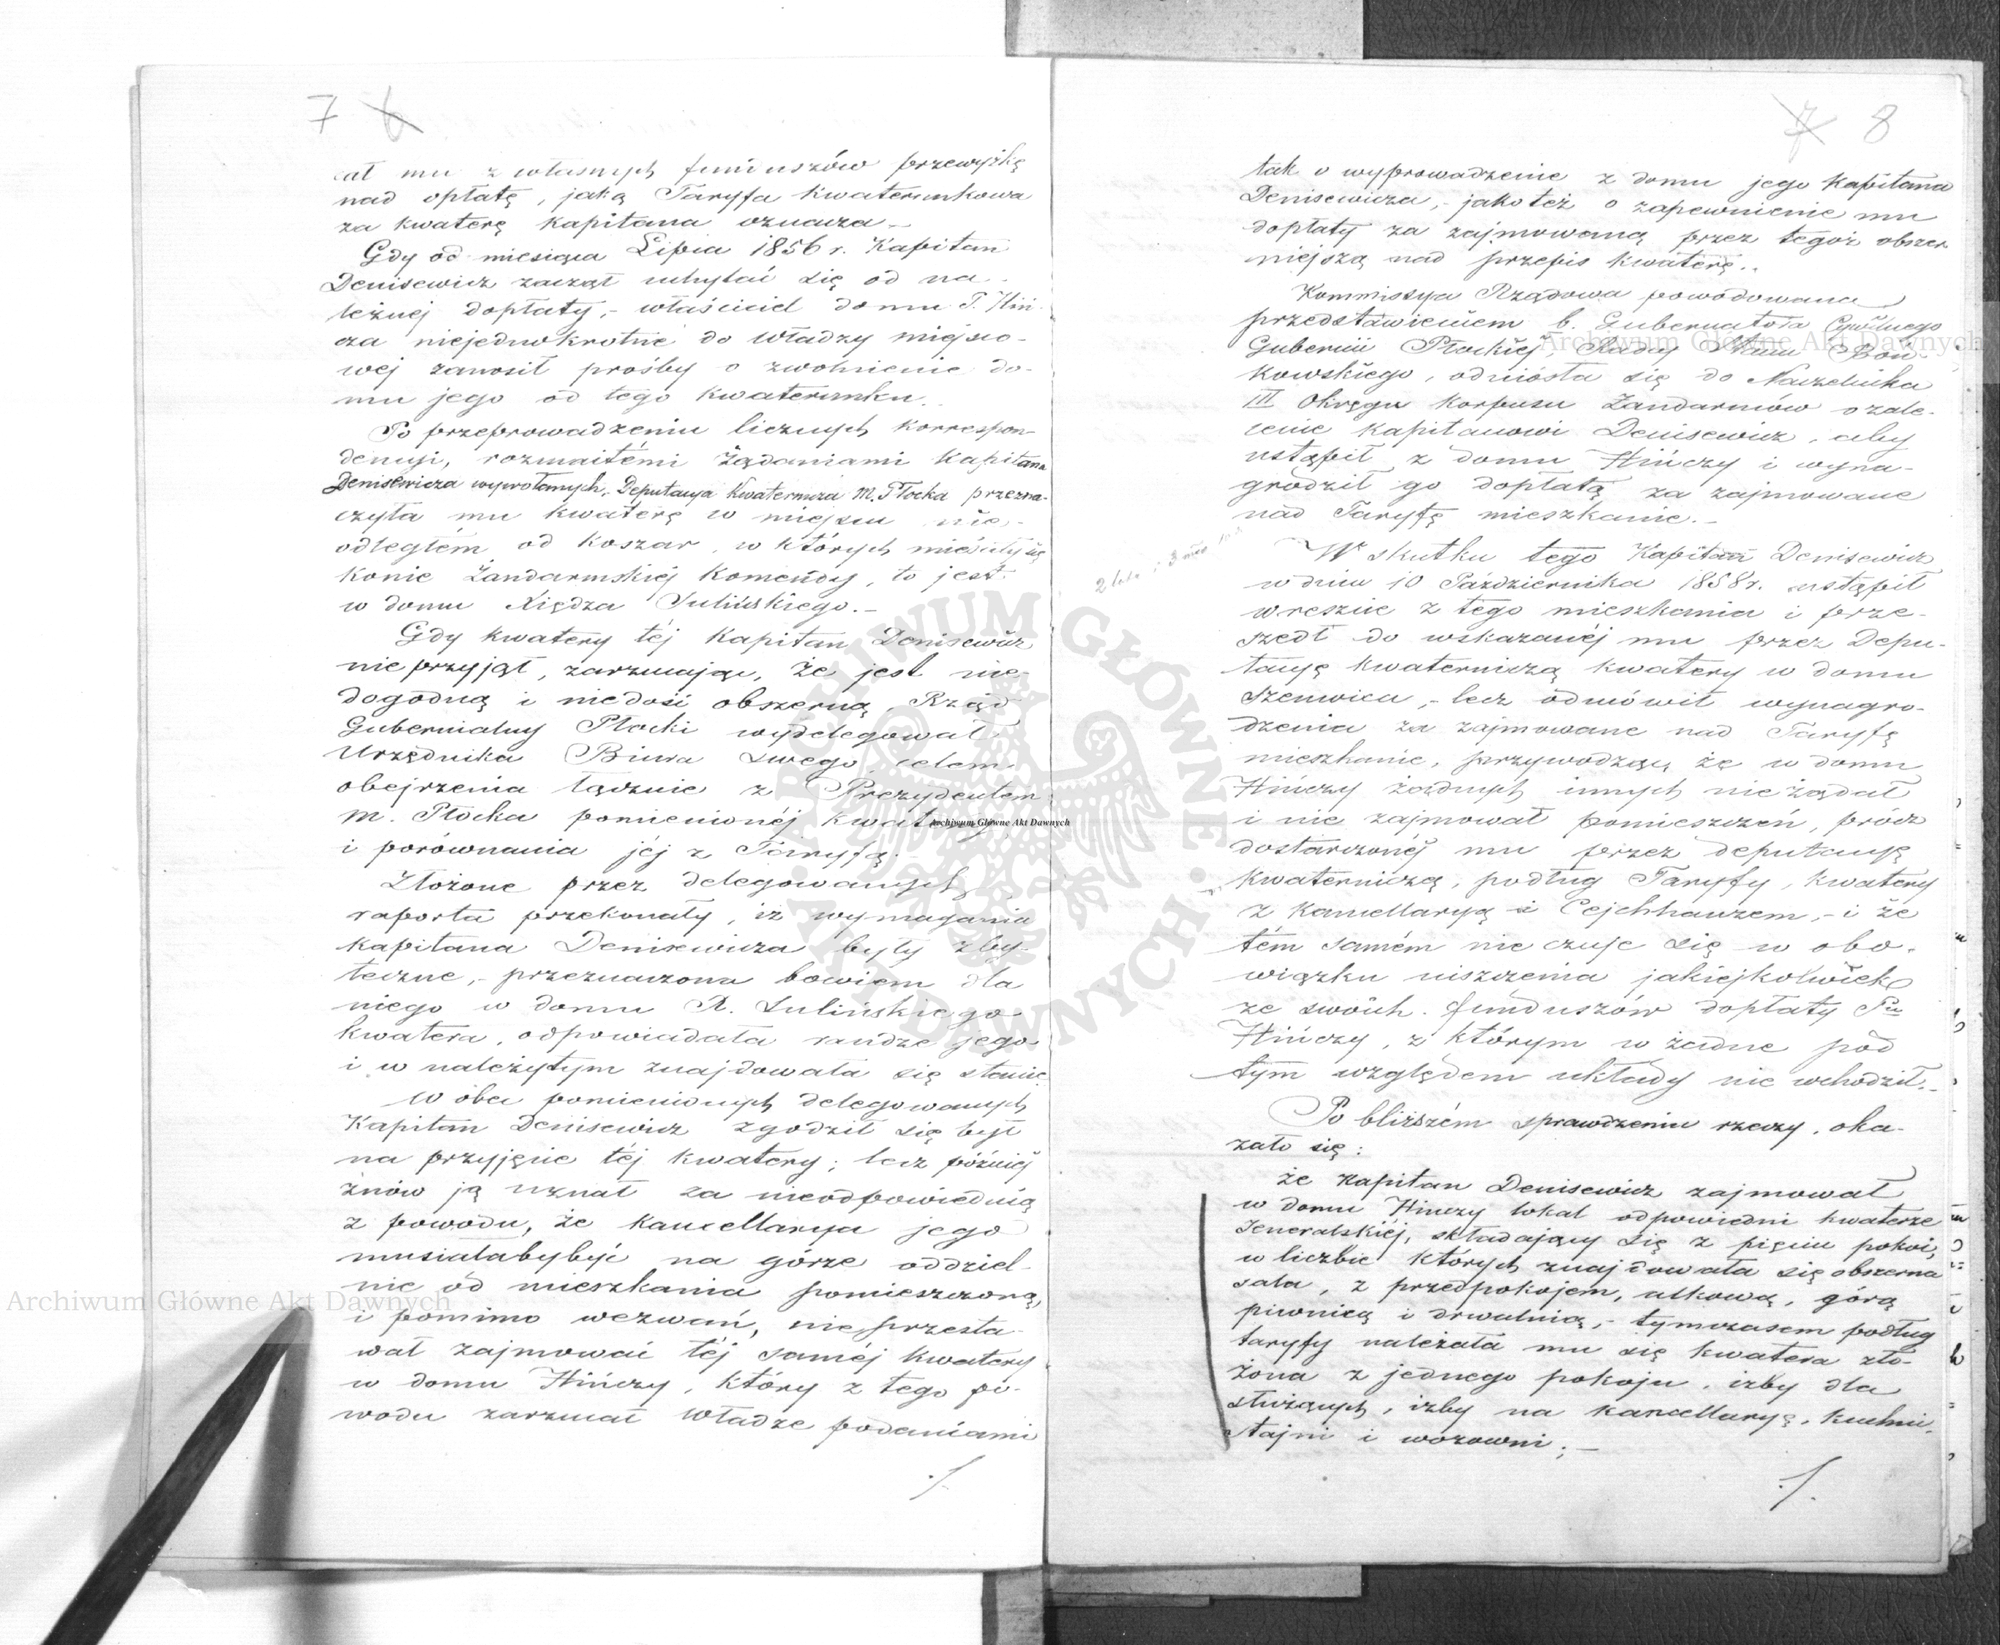 7 6
cał mu z własnych funduszów przewyżkę
nad opłatę, jaką Taryfa Kwaterunkowa
za kwaterę Kapitana oznacza.–
Gdy od miesiąca Lipca 1856 r. Kapitan
Denisewicz zaczął uchylać się od na-
leżnej dopłaty,– właściciel domu P. Hiń-
cza niejednokrotnie do Władzy miejsco-
wej zanosił prośby o zwolnienie do-
mu jego od tego Kwaterunku.
Po przeprowadzeniu licznych korrespon-
dencyi, rozmaitémi żądaniami Kapitana
Denisewicza wywołanych, Deputacya Kwaternicza M. Płocka przezna-
czyła mu kwaterę w miejscu nie-
odległém od koszar, w których mieściły się
konie Żandarmskiéj Komendy, to jest
w domu Xiędza Sulińskiego.–
Gdy kwatery téj Kapitan Denisewicz
nie przyjął, zarzucając, że jest nie-
dogodną i niedość obszerną, Rząd
Gubernialny Płocki wydelegował
Urzędnika Biura swego, celem
obejrzenia łącznie z Prezydentem
M. Płocka pomienionéj kwatery,
i porównania jéj z Taryfą.
Złożone przez delegowanych
raporta przekonały, iż wymagania
Kapitana Denisewicza były zby-
teczne,– przeznaczona bowiem dla
niego w domu X. Sulińskiego
kwatera, odpowiadała randze jego
i w należytym znajdowała się stanie.
W obec pomienionych delegowanych
Kapitan Denisewicz zgodził się był
na przyjęcie téj kwatery; lecz późniéj
znów ją uznał za nieodpowiednią
z powodu, że kancellarya jego
musiałaby być na górze oddziel-
nie od mieszkania pomieszczoną,
i pomimo wezwań, nie przesta-
wał zajmować téj saméj kwatery
w domu Hińczy, który z tego po-
wodu zarzucał Władze podaniami
7 8
tak o wyprowadzenie z domu jego Kapitana
Denisewicza,– jakoteż o zapewnienie mu
dopłaty za zajmowaną przez tegoż obszer
niejszą nad przepis kwaterę.
Kommissya Rządowa powodowana
przedstawieniem b. Gubernatora Cywilnego
Gubernii Płockiéj, Radcy Stanu Boń-
kowskiego, odniosła się do Naczelnika
III Okręgu Korpusu Żandarmów o zale-
cenie Kapitanowi Denisewicz, aby
ustąpił z domu Hińczy i wyna-
grodził go dopłatą za zajmowane
nad Taryfę mieszkanie.–
2 lata i 3 mies
W skutku tego Kapitan Denisewicz
w dniu 10 Października 1858 r. ustąpił
wreszcie z tego mieszkania i prze-
szedł do wskazanéj mu przez Depu-
tacyę Kwaterniczą kwatery w domu
Szenwica,– lecz odmówił wynagro-
dzenia za zajmowane nad Taryfę
mieszkanie, przywodząc, że w domu
Hińczy żadnych innych nie żądał
i nie zajmował pomieszczeń, prócz
dostarczonéj mu przez deputacyę
kwaterniczą, podług Taryfy, kwatery
z Kancellaryą i Cejchhauzem,– i że
tém samém nie czuje się w obo-
wiązku uiszczenia jakiejkolwiek
ze swoich funduszów dopłaty Pu
Hińczy, z którym w żadne pod
tym względem układy nie wchodził.–
Po bliższém sprawdzeniu rzeczy, oka-
zało się:
że Kapitan Denisewicz zajmował
w domu Hińczy lokal odpowiedni kwaterze
Jeneralskiéj, składający się z pięciu pokoi,
w liczbie których znajdowała się obszerna
sala, z przedpokojem, alkową, górą
piwnicą i drwalnią,– tymczasem podług
taryfy należała mu się kwatera zło-
żona z jednego pokoju, izby dla
służących, izby na kancellaryę, kuchni,
stajni i wozowni;–
Archiwum Główne Akt Dawnych
Archiwum Główne Akt Dawnych
Archiwum Główne Akt Dawnych
ARCHIWUM GŁÓWNE AKT DAWNYCH